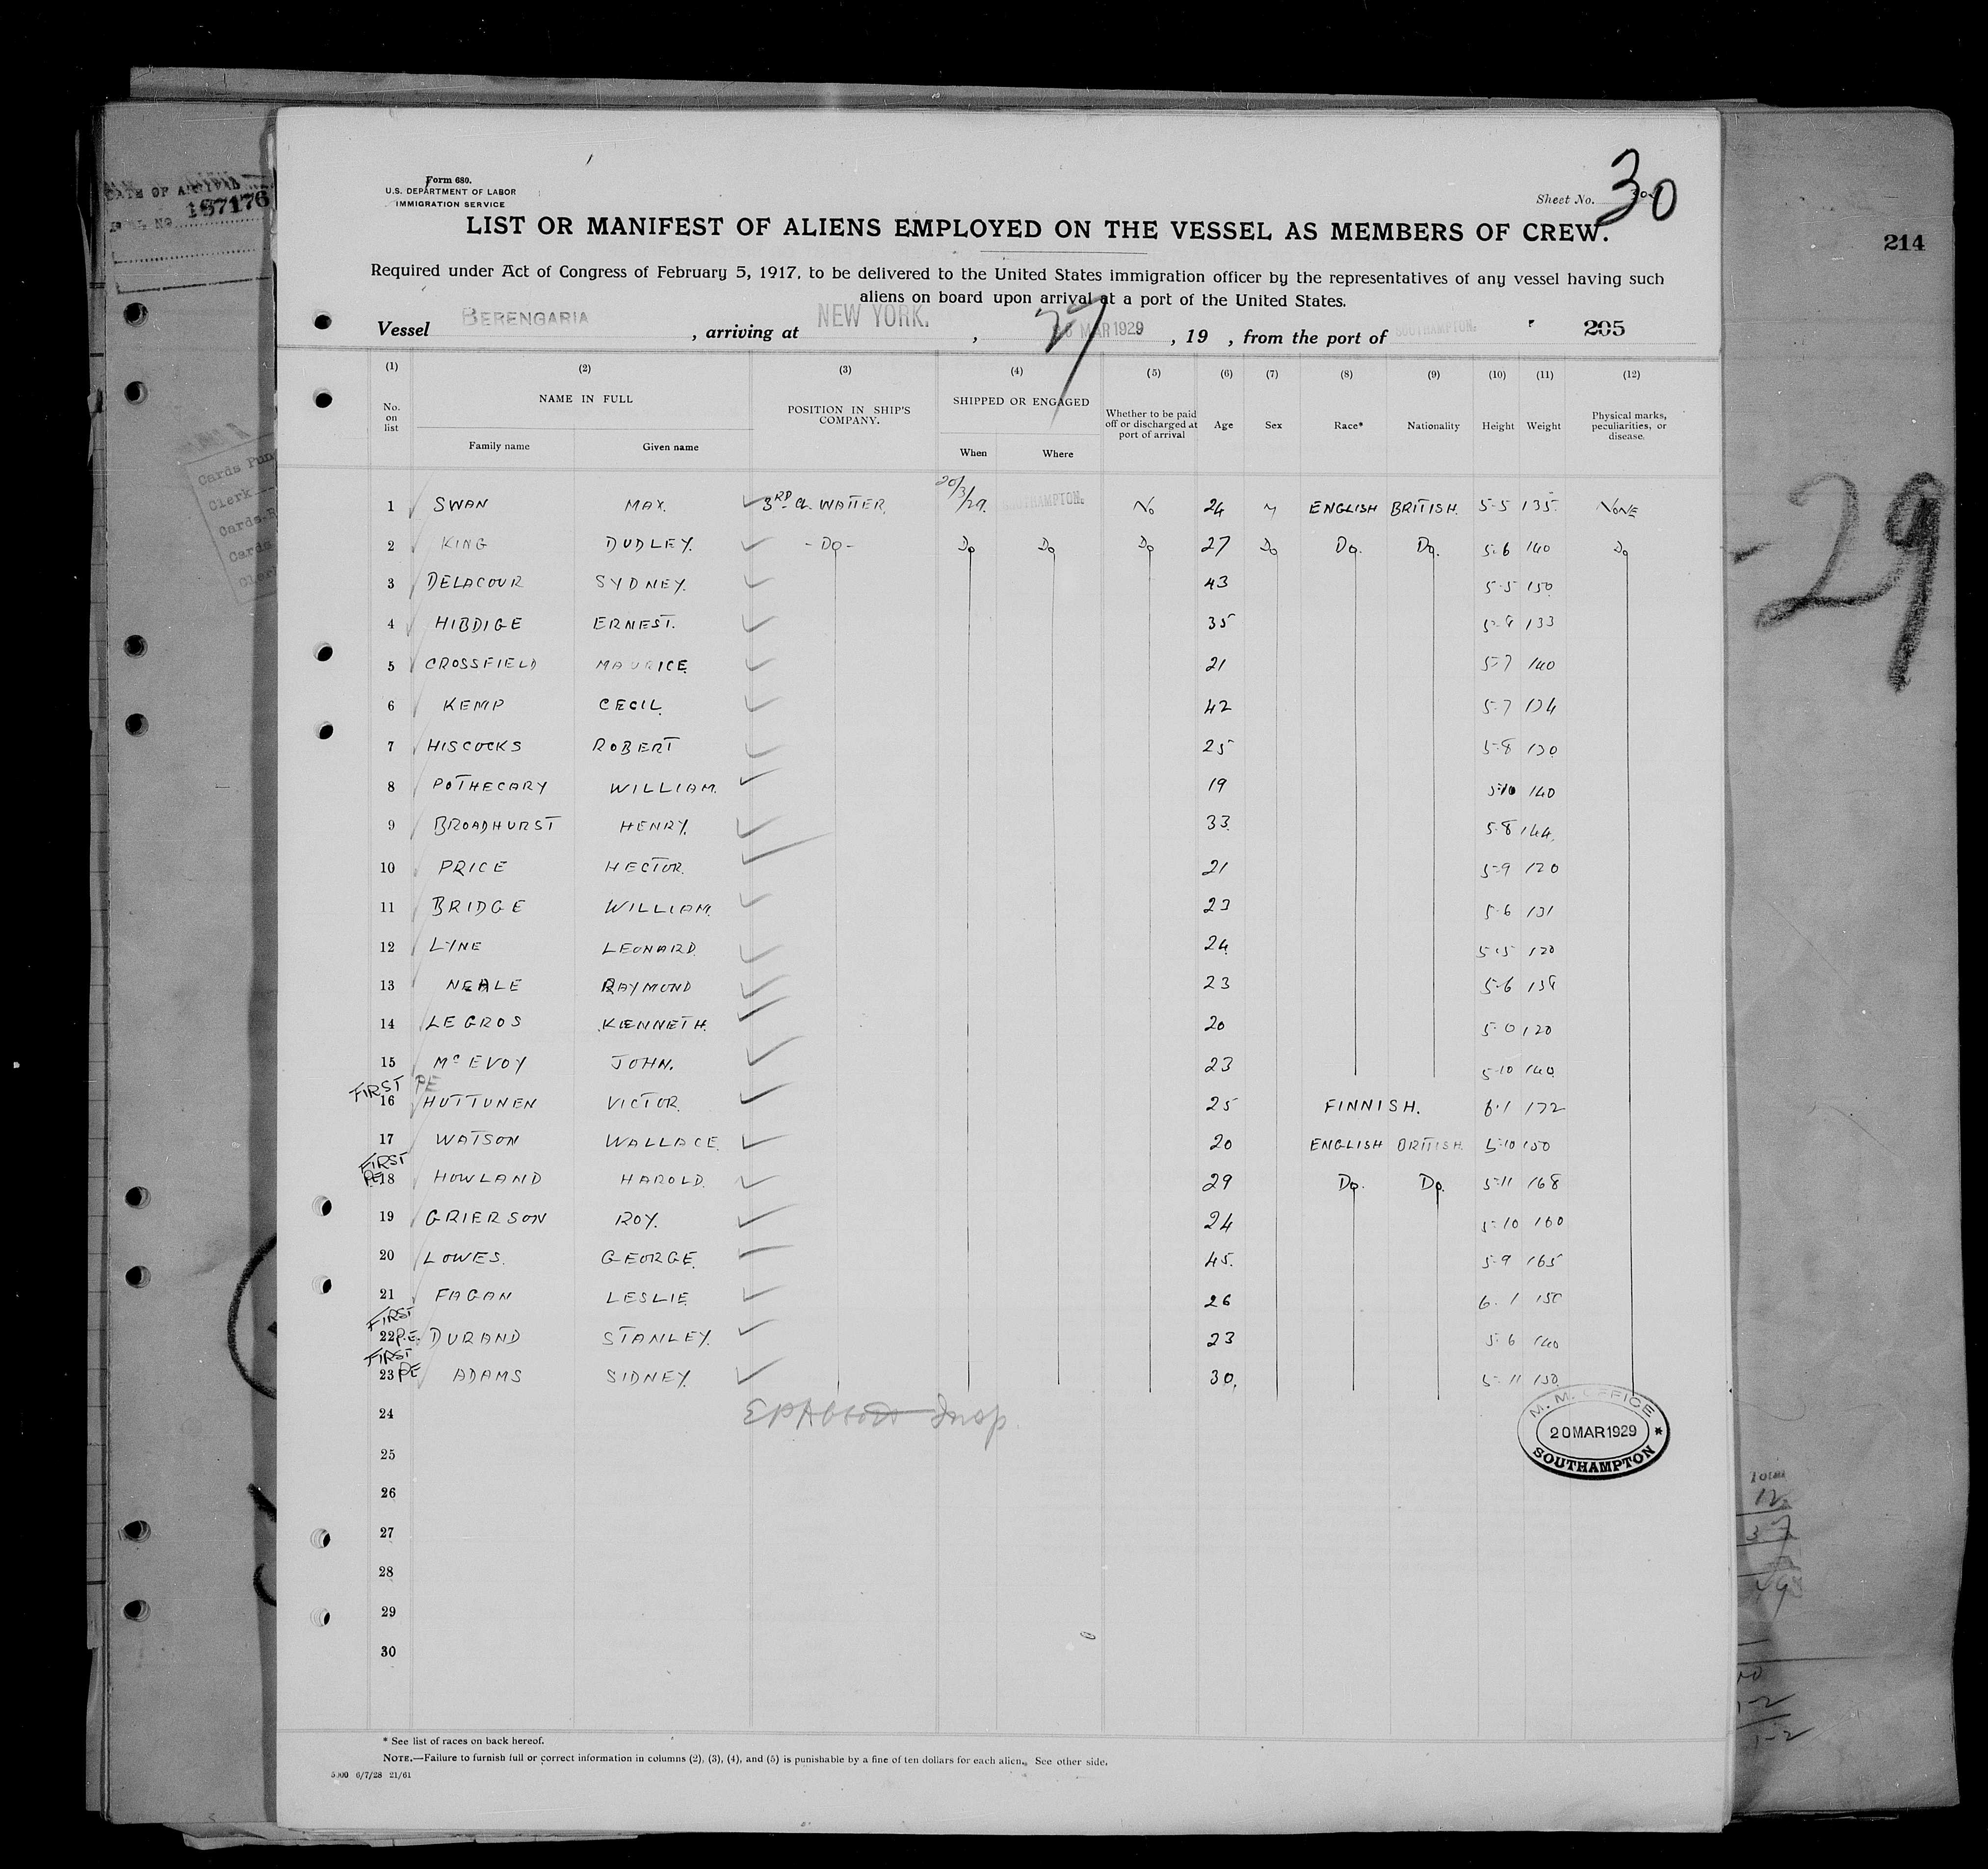 Form 680.
U.S. DEPARTMENT OF LABOR
IMMIGRATION SERVICE
Sheet No. 30
LIST OR MANIFEST OF ALIENS EMPLOYED ON THE VESSEL AS MEMBERS OF CREW.
Required under Act of Congress of February 5, 1917, to be delivered to the United States immigration officer by the representatives of any vessel having such
aliens on board upon arrival at a port of the United States.
Vessel BERENGARIA , arriving at NEW YORK. , 27 MAR 1929 , 19 , from the port of SOUTHAMPTON. 205
(1) (2) (3) (4) (5) (6) (7) (8) (9) (10) (11) (12)
No. on list NAME IN FULL POSITION IN SHIP'S COMPANY. SHIPPED OR ENGAGED Whether to be paid off or discharged at port of arrival Age Sex Race* Nationality Height Weight Physical marks, peculiarities, or disease.
Family name Given name When Where
1 SWAN MAX. 3RD CL. WAITER. 20/3/29. SOUTHAMPTON. No 24 M ENGLISH BRITISH. 5-5 135. NONE
2 KING DUDLEY. -Do- Do Do Do 27 Do Do. Do. 5-6 140 Do
3 DELACOUR SYDNEY. 43 5-5 150
4 HIBDIGE ERNEST. 35 133
5 CROSSFIELD MAURICE. 21 5-7 140
6 KEMP CECIL. 42 5-7 134
7 HISCOCKS ROBERT 25 5-8 130
8 POTHECARY WILLIAM. 19 5-10 140
9 BROADHURST HENRY. 33. 5-8 144.
10 PRICE HECTOR. 21 5-9 120
11 BRIDGE WILLIAM. 23 5-6 131
12 LYNE LEONARD. 24. 5-5 120
13 NEALE RAYMOND 23 5-6 138
14 LE GROS KENNETH. 20 120
15 McEVOY JOHN. 23 5-10 140
FIRST PE
16 HUTTUNEN VICTOR. 25 FINNISH. 6-1 172
17 WATSON WALLACE. 20 ENGLISH BRITISH. 5-10 150
FIRST PE
18 HOWLAND HAROLD. 29 Do. Do. 5-11 168
19 GRIERSON ROY. 24 5-10 160
20 LOWES. GEORGE. 45. 5-9 165
21 FAGAN LESLIE. 26 6-1 150
FIRST
22 P.E. DURAND STANLEY. 23 5-6 140
FIRST
23 PE ADAMS SIDNEY. 30. 5-11 150
24 Insp.
25
26
27
28
29
30
M. M. OFFICE
20 MAR 1929
SOUTHAMPTON
* See list of races on back hereof.
NOTE.—Failure to furnish full or correct information in columns (2), (3), (4), and (5) is punishable by a fine of ten dollars for each alien. See other side.
5000 6/7/28 21/61
DATE OF ARRIVAL
187176
Cards Pun
Clerk
Cards
Cards
Clerk
214
-29
Total